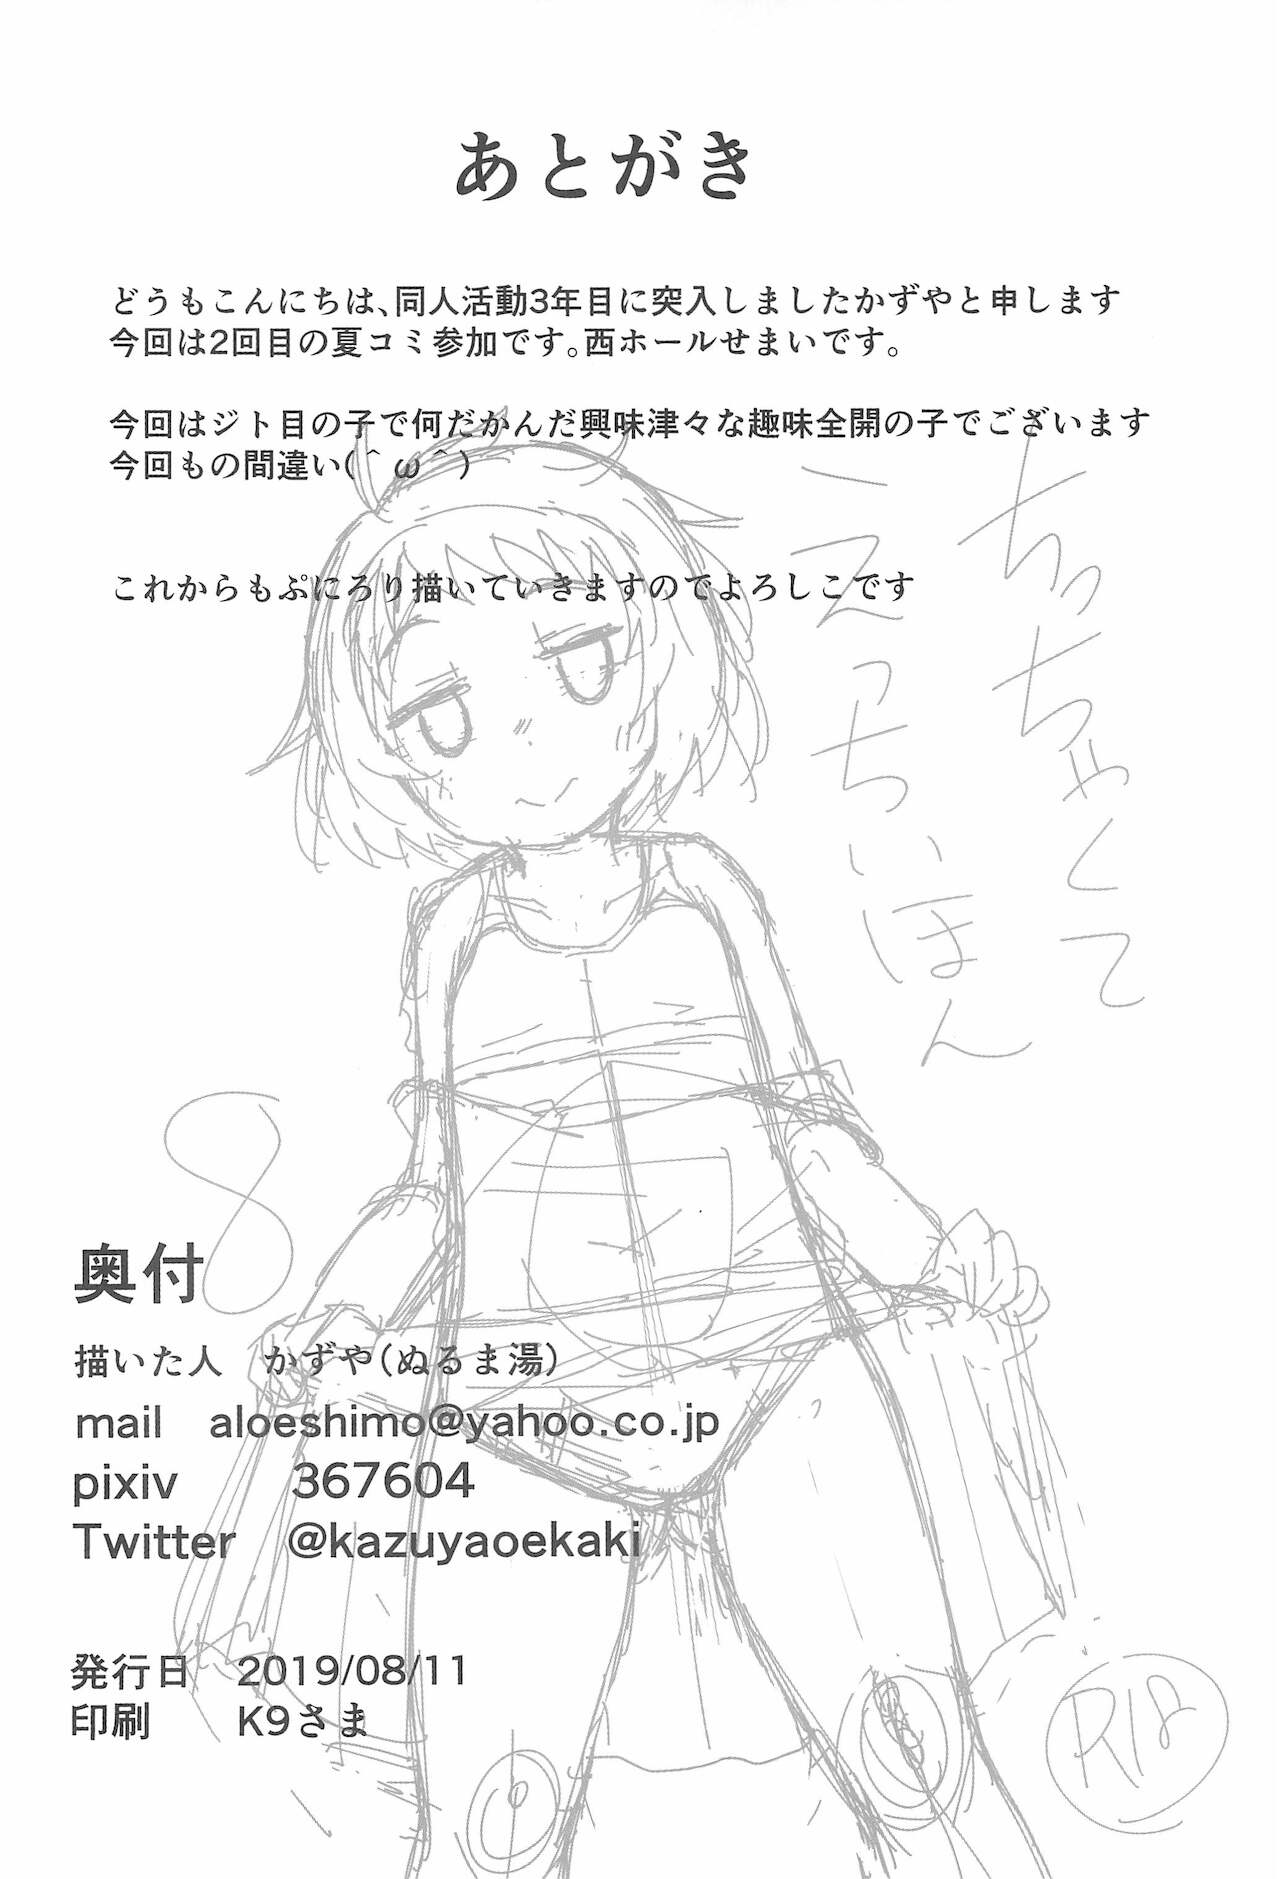 あとがき
どうもこんにちは、同人活動3年目に突入しましたかずやと申します
今回は2回目の夏コミ参加です。西ホールせまいです。
今回はジト目の子で何だかんだ興味津々な趣味全開の子でございます
今回もの間違い(＾ω＾)
これからもぷにろり描いていきますのでよろしこです
ちっちゃくて
えっちいほん
8
奥付
描いた人　かずや(ぬるま湯)
mail　aloeshimo@yahoo.co.jp
pixiv　367604
Twitter　@kazuyaoekaki
発行日　2019/08/11
印刷　K9さま
R18